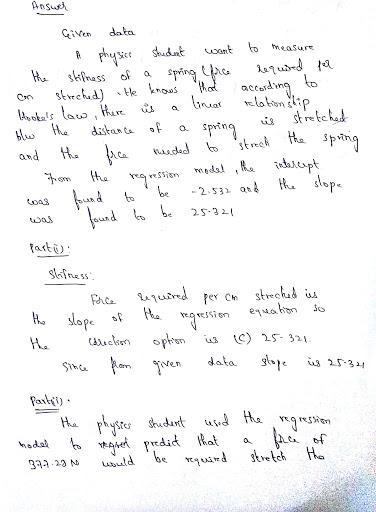 Answer
Given data
A physics student want to measure
the stifness of a spring (force required per
cm streched). He knows that according to
Hooke's law, there is a linear relationship
b/w the distance of a spring is stretched
and the force needed to strech the spring
From the regression model, the intercept
was found to be -2.532 and the slope
was found to be 25.321
Part(i):
Stifness:
Force required per cm streched is
the slope of the regression equation so
the option is (C) 25-321
Since from given data slope is 25-321
Part(ii).
the physics student used the regression
model to predict that a force of
377.29 N would be required stretch the